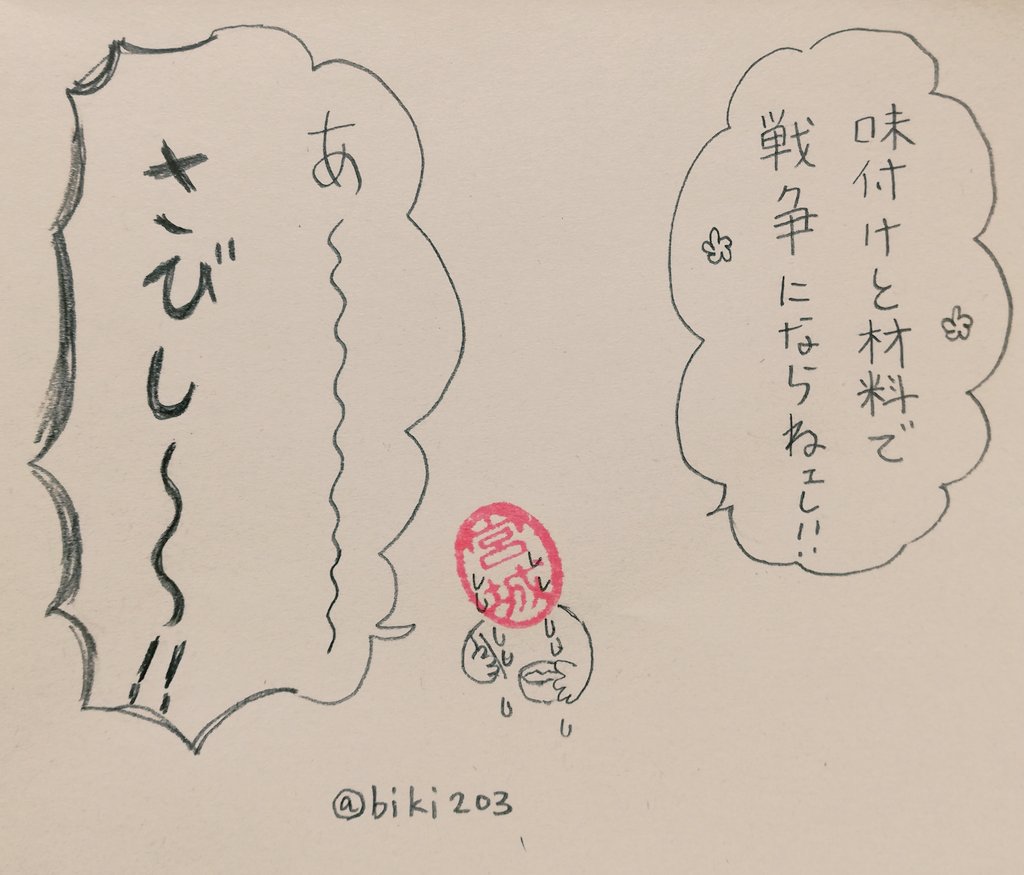 味付けと材料で
戦争にならねェし!!
あ～～～～～～
さびし～～!!
宮城
@biki203